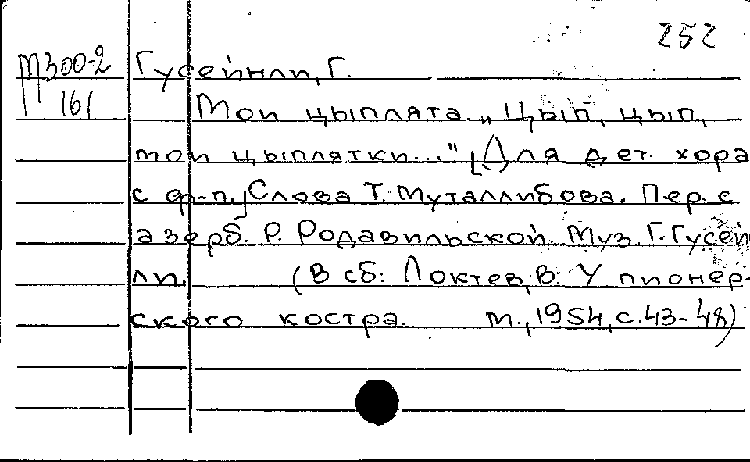 252
М300-2 Гусейнли, Г.
161 Мои цыплята. „Цып, цып,
мои цыплятки..." [Для дет. хора
с ф-п.] Слова Т. Муталлибова. Пер. с
азерб. Р. Родавильской. Муз. Г. Гусей
ли. (В сб: Локтев, В. У пионер-
ского костра. М., 1954, с. 43-48)